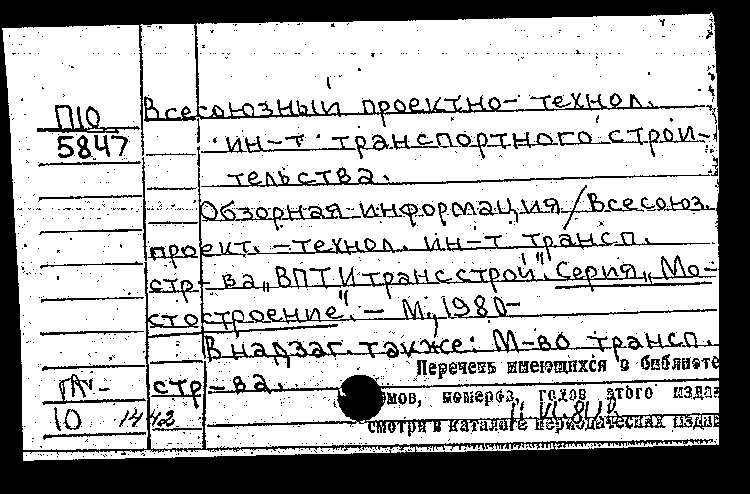 П10 Всесоюзный проектно-технол.
5847 ин-т транспортного строи-
тельства.
Обзорная информация/Всесоюз.
проект.-технол. ин-т трансп.
стр-ва „ВПТИтрансстрой". Серия „Мо-
стостроение". – М., 1980-
В надзаг. также: М-во трансп.
Перечень имеющихся в библиоте
стр-ва.
омов, номеров, годов этого изда
10 14 42
смотри в каталоге периодических издан